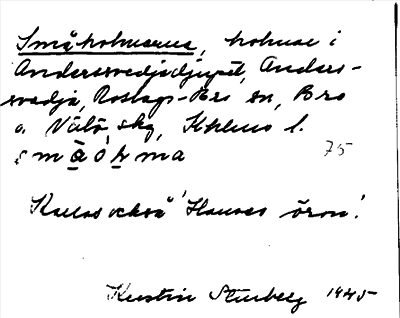 Småholmarna, holmar i
Andersvedjedjupet, Anders-
svedja, Roslags-Bro sn, Bro
o. Vätö skg, Sthlms l.
små ò h ma 75
Kallas också 'Hanses öron'.
Kerstin Stenberg 1945